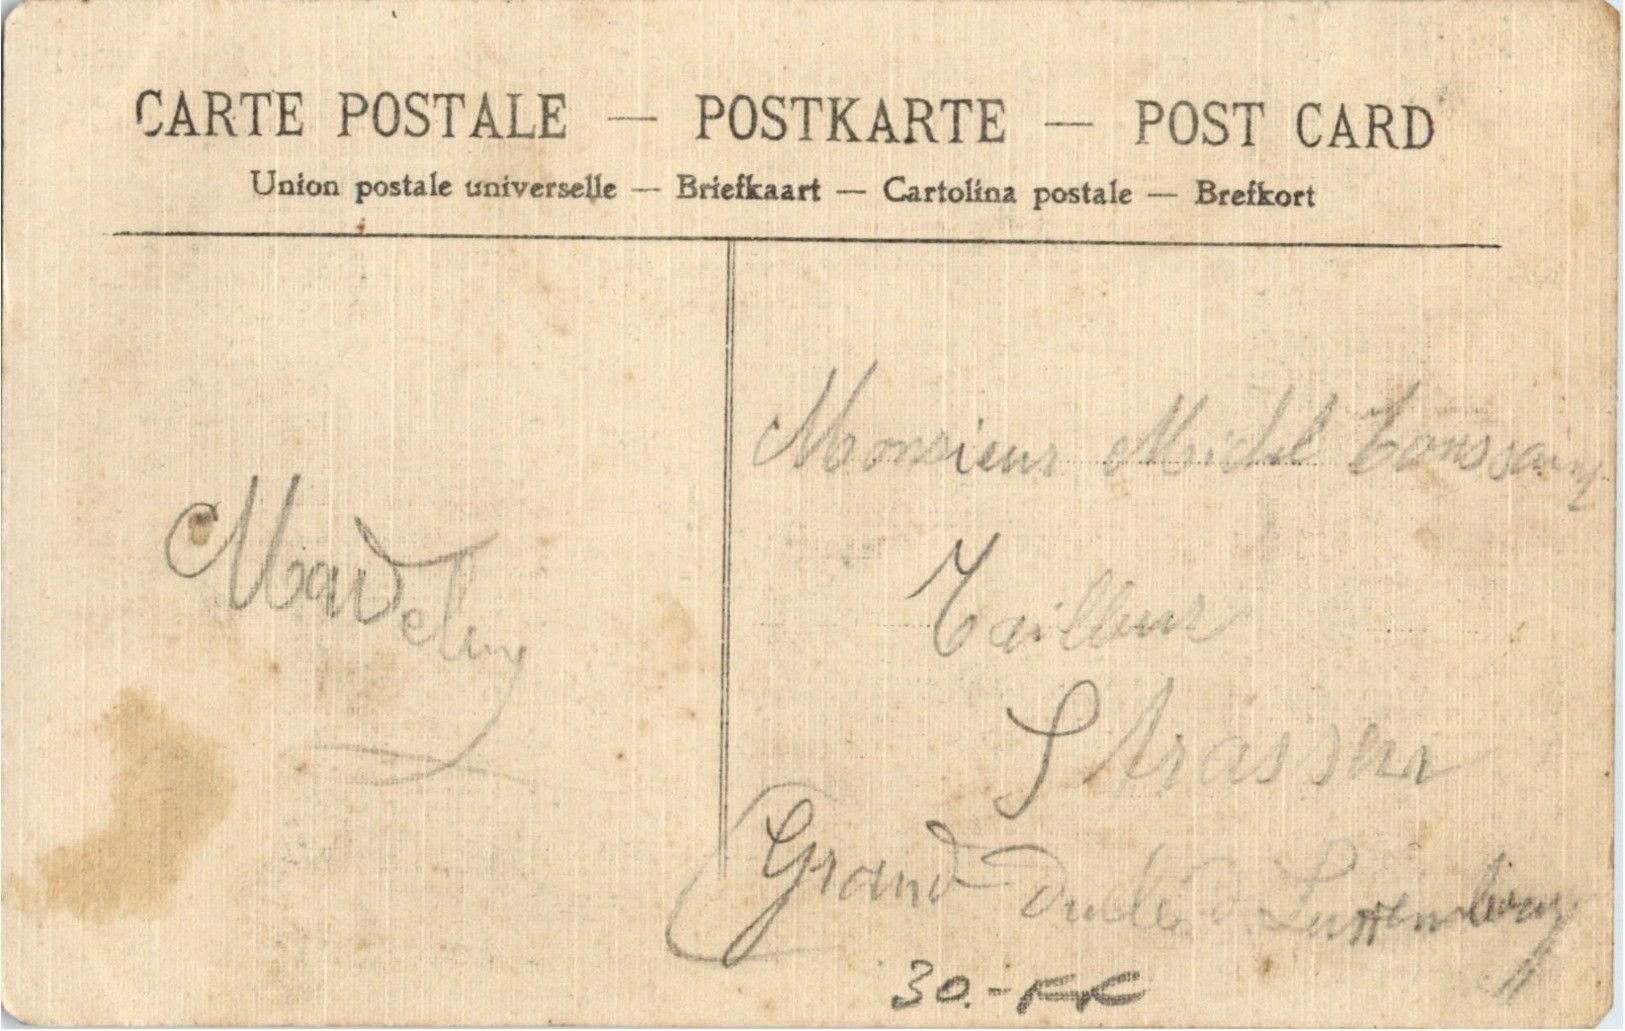 CARTE POSTALE — POSTKARTE — POST CARD
Union postale universelle — Briefkaart — Cartolina postale — Brefkort
Monsieur Michel Toussaint
Tailleur
Strassen
Grand Duché d. Luxembourg
30.-